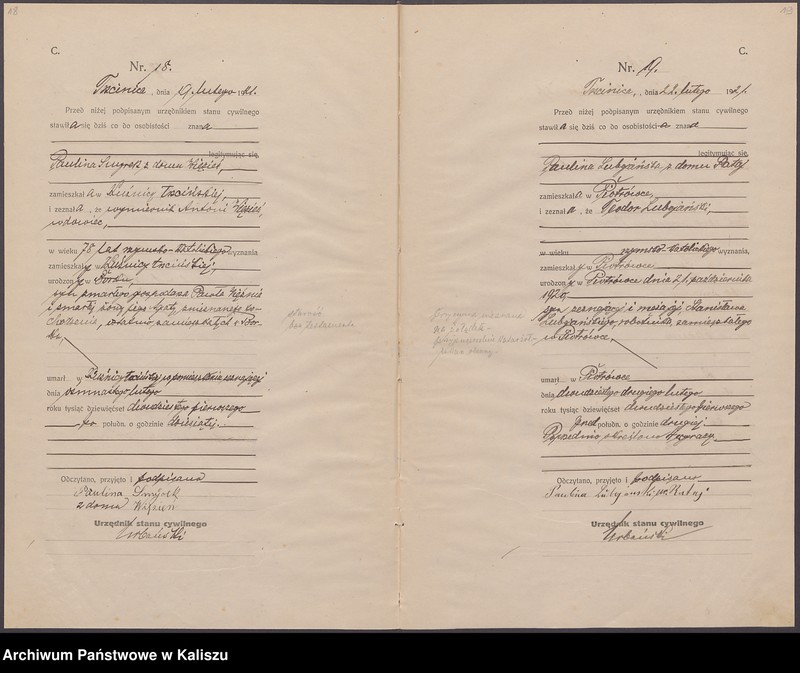 18
C.
Nr. 18.
Trcinica, dnia 9. lutego 1921.
Przed niżej podpisanym urzędnikiem stanu cywilnego
stawiła się dziś co do osobistości znana
legitymując się,
Paulina z domu
zamieszkała w Kuźnicy Trcińskiej
i zeznała, że Antoni
wdowiec,
w wieku 78 lat rzymsko-katolickiego wyznania
zamieszkały w Kuźnicy trcińskiej,
urodzony w
syn zmarłego gospodarza
i zmarłej żony jego
ostatnio zamieszkałych w
umarł w Kuźnicy trcińskiej w pomieszkaniu zeznającej
dnia ósmnastego lutego
roku tysiąc dziewięćset dwudziestego pierwszego
po połudn. o godzinie dziesiątej.
Odczytano, przyjęto i podpisano
Paulina Smyrek
z domu
Urzędnik stanu cywilnego
Urbański
starość
bez testamentu
113
C.
Nr. 19.
Trcinica, dnia 22. lutego 1921.
Przed niżej podpisanym urzędnikiem stanu cywilnego
stawiła się dziś co do osobistości znana
legitymując się,
Paulina Lubojańska, z domu Rataj
zamieszkała w Piotrówce,
i zeznała, że Teodor Lubojański,
w wieku rzymsko-katolickiego wyznania,
zamieszkały w Piotrówce
urodzony w Piotrówce dnia 21. października
1920,
syn zeznającej i mężajej Stanisława
Lubojańskiego, robotnika, zamieszkałego
w Piotrówce,
umarł w Piotrówce
dnia dwudziestego drugiego lutego
roku tysiąc dziewięćset dwudziestego pierwszego
przed połudn. o godzinie drugiej.
Poprzednio określono 4 wyrazy.
Odczytano, przyjęto i podpisano
Paulina Lubojanski ur. Rataj
Urzędnik stanu cywilnego
Urbański
Archiwum Państwowe w Kaliszu